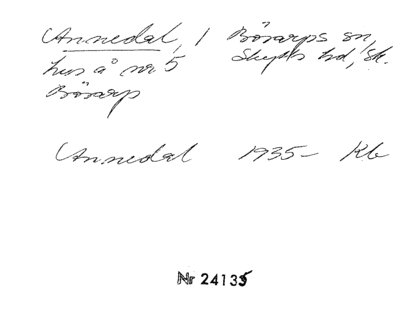 Annedal, 1 Bösarps sn,
hus å nr 5 Skytts hd, Sk.
Bösarp
Annedal 1935– Kb
Nr 24135